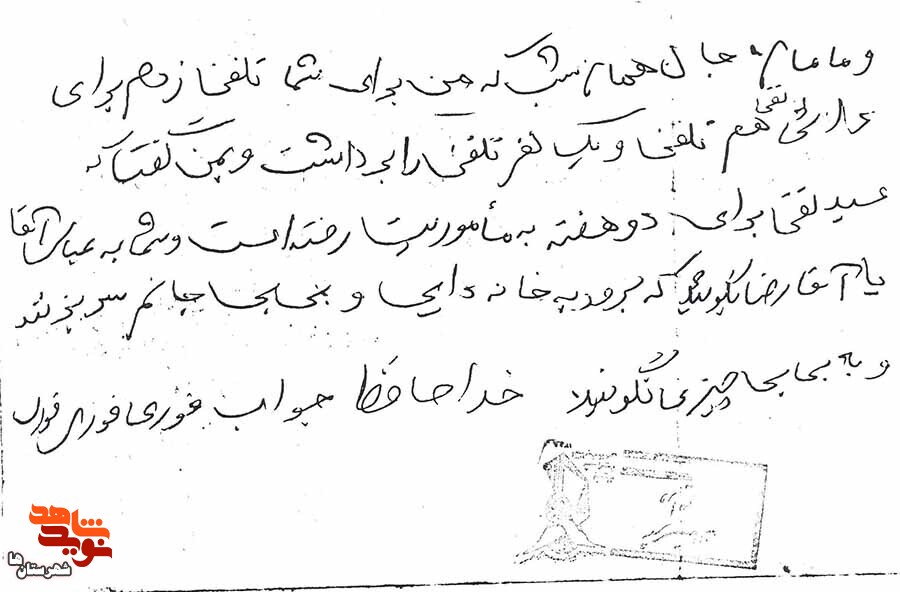 و مامان جان همان شب که من برای شما تلفن زدم برای
تقی هم تلفن و یک نفر تلفن را برداشت و بمن گفت که
سید تقی برای دو هفته به مأموریت رفته است و شما به عباس آقا
یا آقا رضا بگویید که برود به خانه دایی و بی بی جانم سر بزند
و به بی بی چیزی نگویید خداحافظ جواب فوری فوری فوری
نوید شاهد
شهرستان‌ها